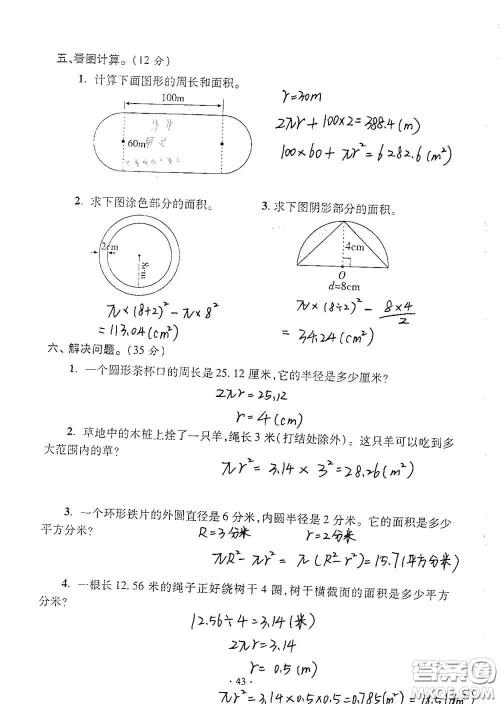 五、看图计算。(12 分)
1. 计算下面图形的周长和面积。
100m
60m
r=30m
2πr+100×2=388.4(m)
100×60+πr²=6282.6(m²)
2. 求下图涂色部分的面积。
2cm
8cm
π×(8+2)²-π×8²
=113.04(cm²)
3. 求下图阴影部分的面积。
4cm
O
d=8cm
π×(8÷2)²-8×4/2
=34.24(cm²)
六、解决问题。(35 分)
1. 一个圆形茶杯口的周长是 25.12 厘米,它的半径是多少厘米?
2πr=25.12
r=4(cm)
2. 草地中的木桩上拴了一只羊,绳长 3 米(打结处除外)。这只羊可以吃到多
大范围内的草?
πr²=3.14×3²=28.26(m²)
3. 一个环形铁片的外圆直径是 6 分米,内圆半径是 2 分米。它的面积是多少
平方分米?
R=3分米
r=2分米
πR²-πr²=π(R²-r²)=15.7(平方分米)
4. 一根长 12.56 米的绳子正好绕树干 4 圈,树干横截面的面积是多少平方
分米?
12.56÷4=3.14(米)
2πr=3.14
r=0.5(m)
· 43 ·
πr²=3.14×0.5×0.5=0.785(m²)=78.5(dm²)